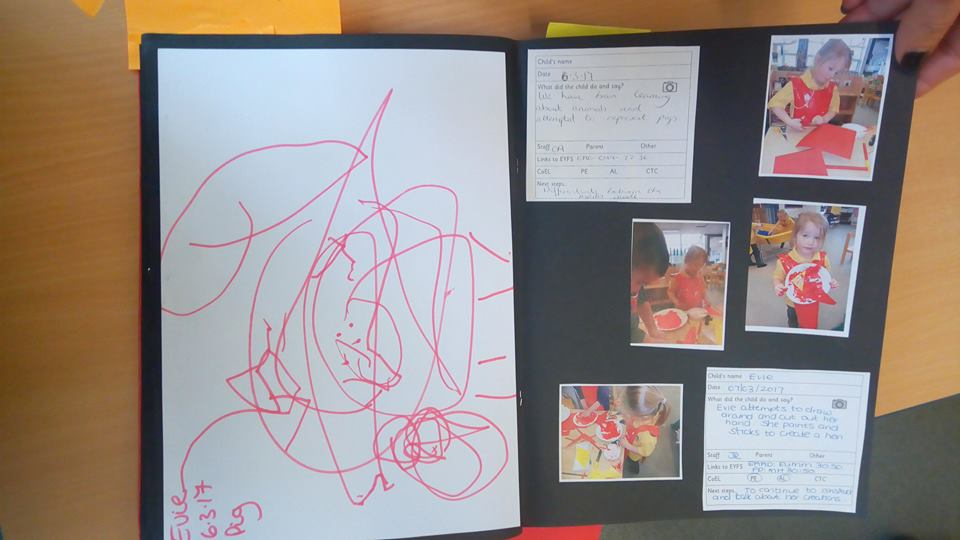 Evie
6.3.17
Pig
Child's name
Date 6.3.17
What did the child do and say?
We have been learning
about animals and
attempted to represent pigs
Staff CA Parent Other
Links to EYFS
CoEL PE AL CTC
Next steps
Child's name Evie
Date 07/03/2017
What did the child do and say?
Evie attempts to draw
around and cut out her
hand. She paints and
sticks to create a hen
Staff JR Parent Other
Links to EYFS EAAD: EUMM 30.50
PD: MH 30.50
CoEL PE AL CTC
Next steps To continue to construct
and talk about her creations.